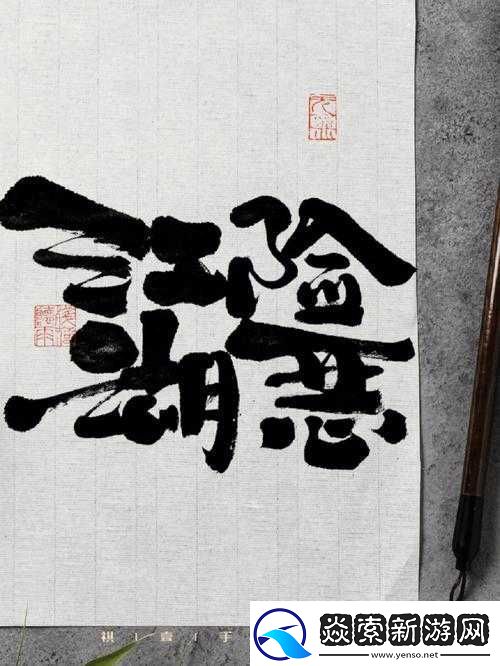 江湖
险恶
祺|壹|手
焱索新游网
www.yenso.net